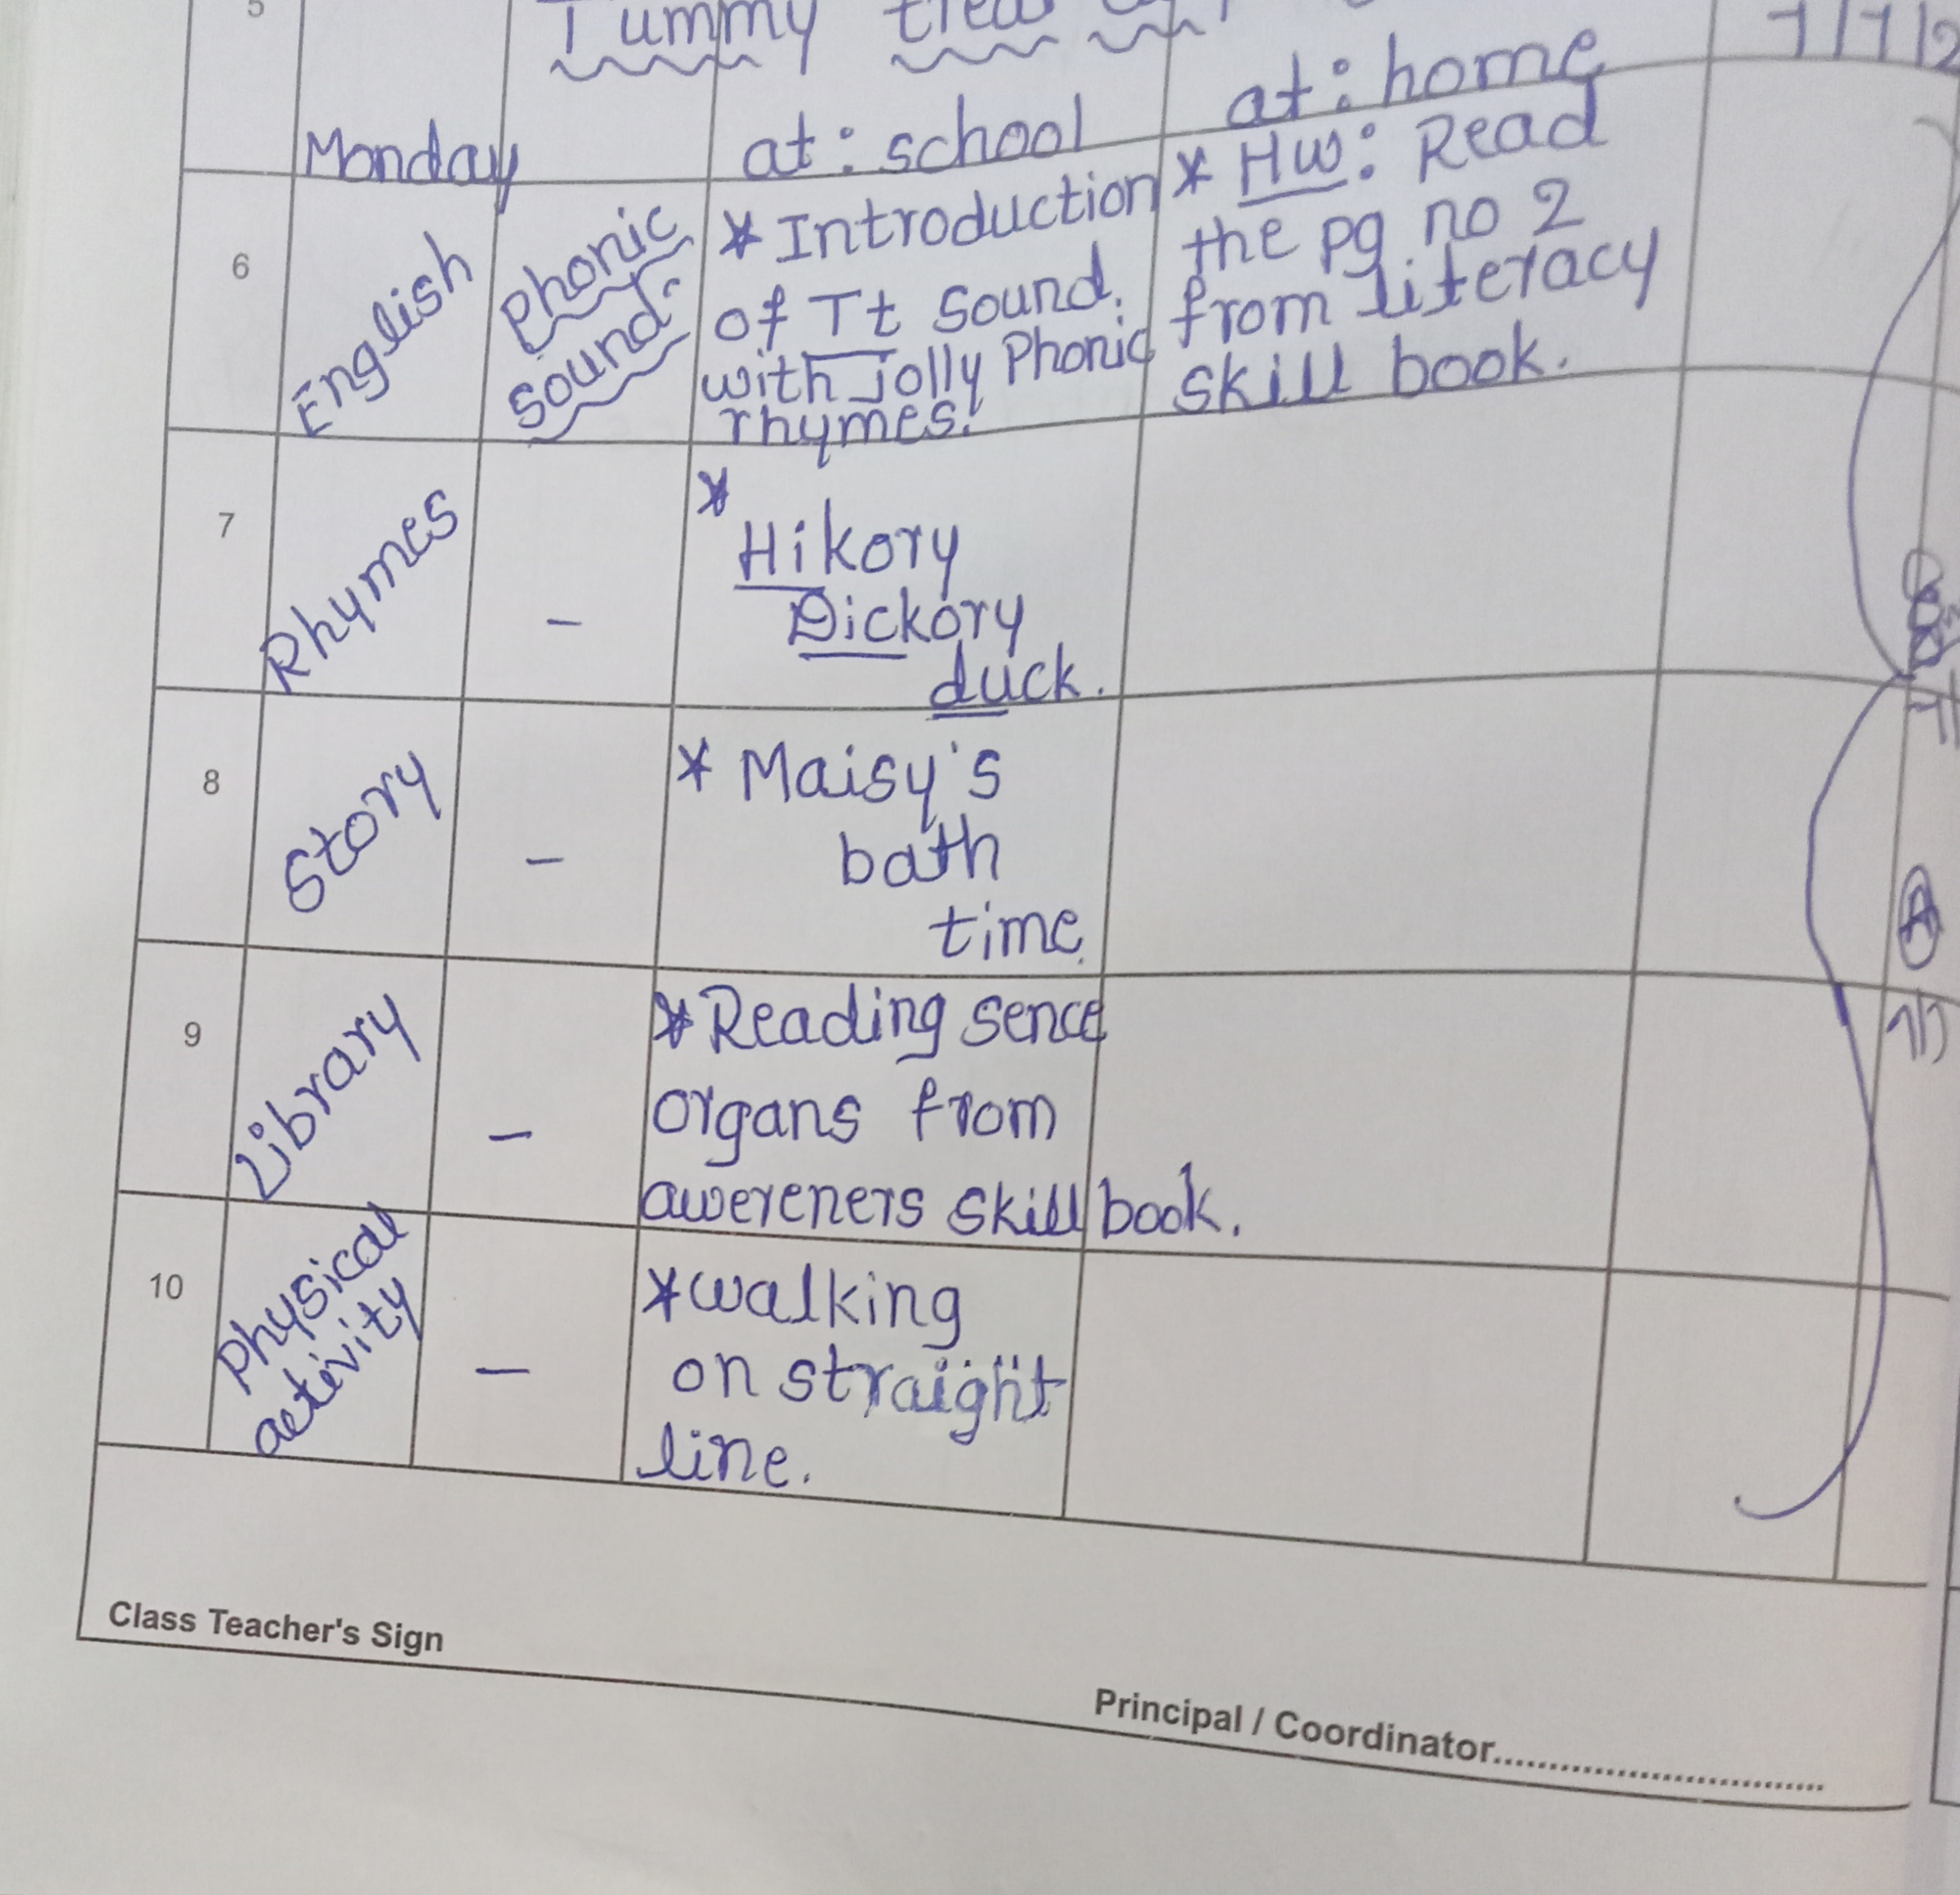 5
Tummy
at: home
Monday
at: school
6
English
Phonic
sound.
* Introduction
of Tt sound.
with jolly Phonic
rhymes.
* Hw: Read
the pg no 2
from literacy
skill book.
7
Rhymes
–
*
Hikory
Dickory
duck.
8
Story
–
* Maisy's
bath
time.
9
Library
–
* Reading sence
organs from
awereners skill book.
10
Physical
activity
–
* walking
on straight
line.
Class Teacher's Sign
Principal / Coordinator..............................